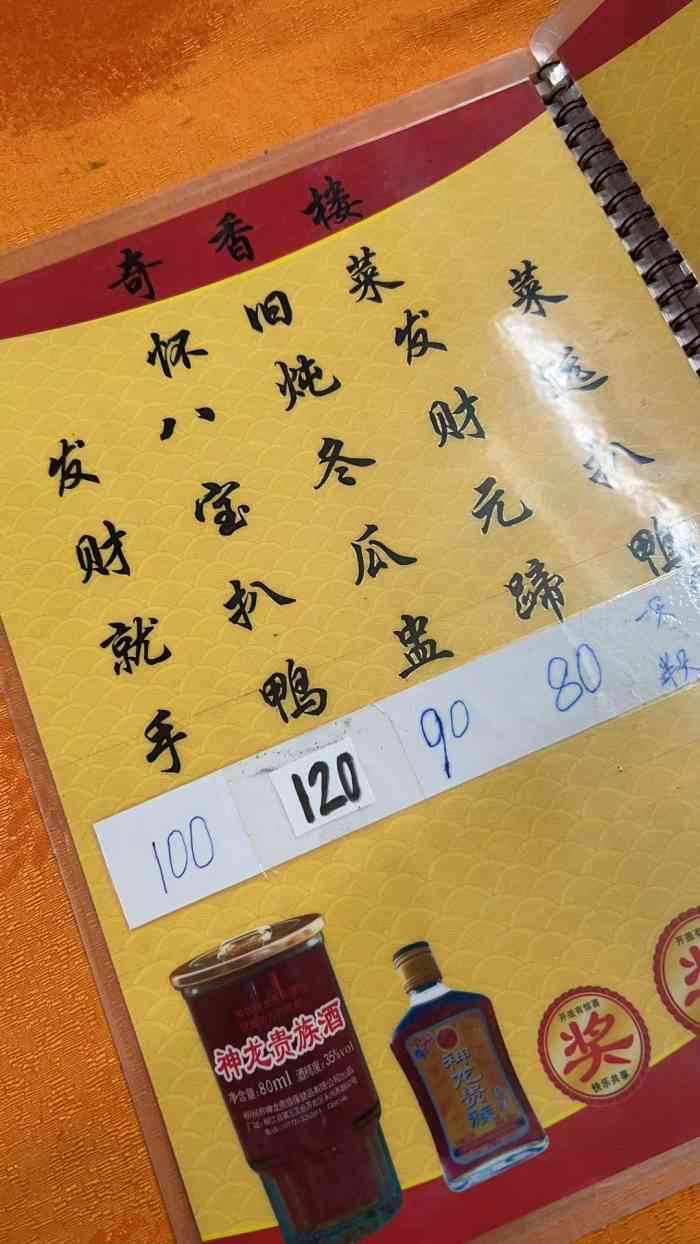 奇香楼
怀旧菜
发财就手
八宝扒鸭
炖冬瓜盅
发财元蹄
菜远扒鸭
100
120
90
80
半只
神龙贵族酒
净含量:80ml 酒精度:35%vol
神龙贵族酒
奖
快乐共享